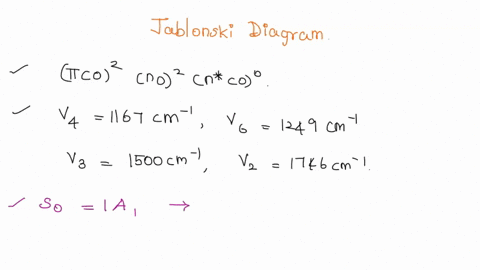 Jablonski Diagram.
✓ (πCO)² (nO)² (n*CO)⁰.
✓ V₄ = 1167 cm⁻¹, V₆ = 1249 cm⁻¹
V₃ = 1500 cm⁻¹, V₂ = 1746 cm⁻¹.
✓ S₀ = 1A₁ →